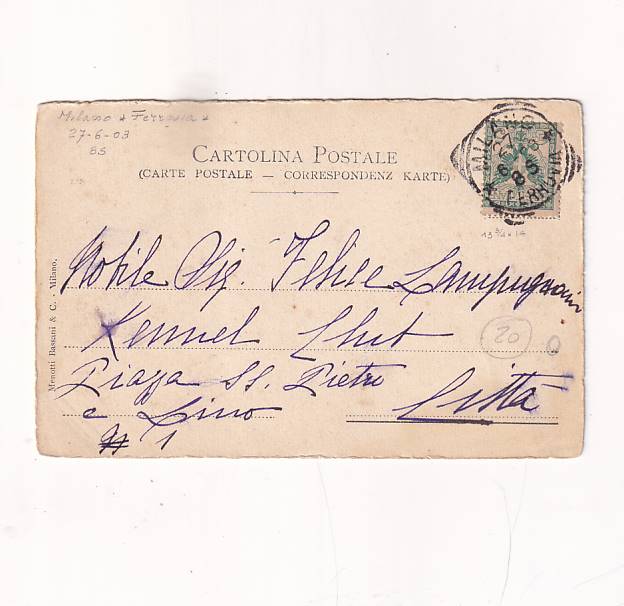 Milano * Ferrovia *
27-6-03
8S
CARTOLINA POSTALE
(CARTE POSTALE — CORRESPONDENZ KARTE)
MILANO * FERROVIA *
27
8 S
13 3/4 x 14
Nobile Sig. Felice Lampugnani
Kennel Club
20
Piazza SS. Pietro
e Lino Città
N 1
Menotti Bassani & C. - Milano.